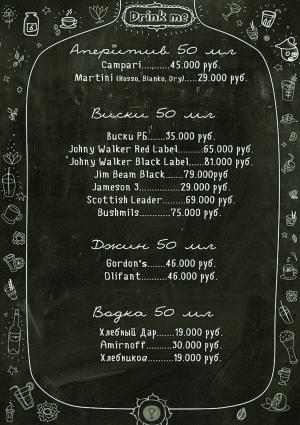 Drink me
Аперитив 50 мл
Campari.......45.000 руб.
Martini (Rosso, Bianko, Dry).....29.000 руб.
Виски 50 мл
Виски РБ.......35.000 руб.
Johny Walker Red Label.........65.000 руб.
Johny Walker Black Label......81.000 руб.
Jim Beam Black.......79.000руб
Jameson 3..............29.000 руб.
Scottish Leader.........69.000 руб.
Bushmils............75.000 руб.
Джин 50 мл
Gordon's.......46.000 руб.
Olifant..........46.000 руб.
Водка 50 мл
Хлебный Дар.......19.000 руб.
Amirnoff..........30.000 руб.
Хлебникоа..........19.000 руб.